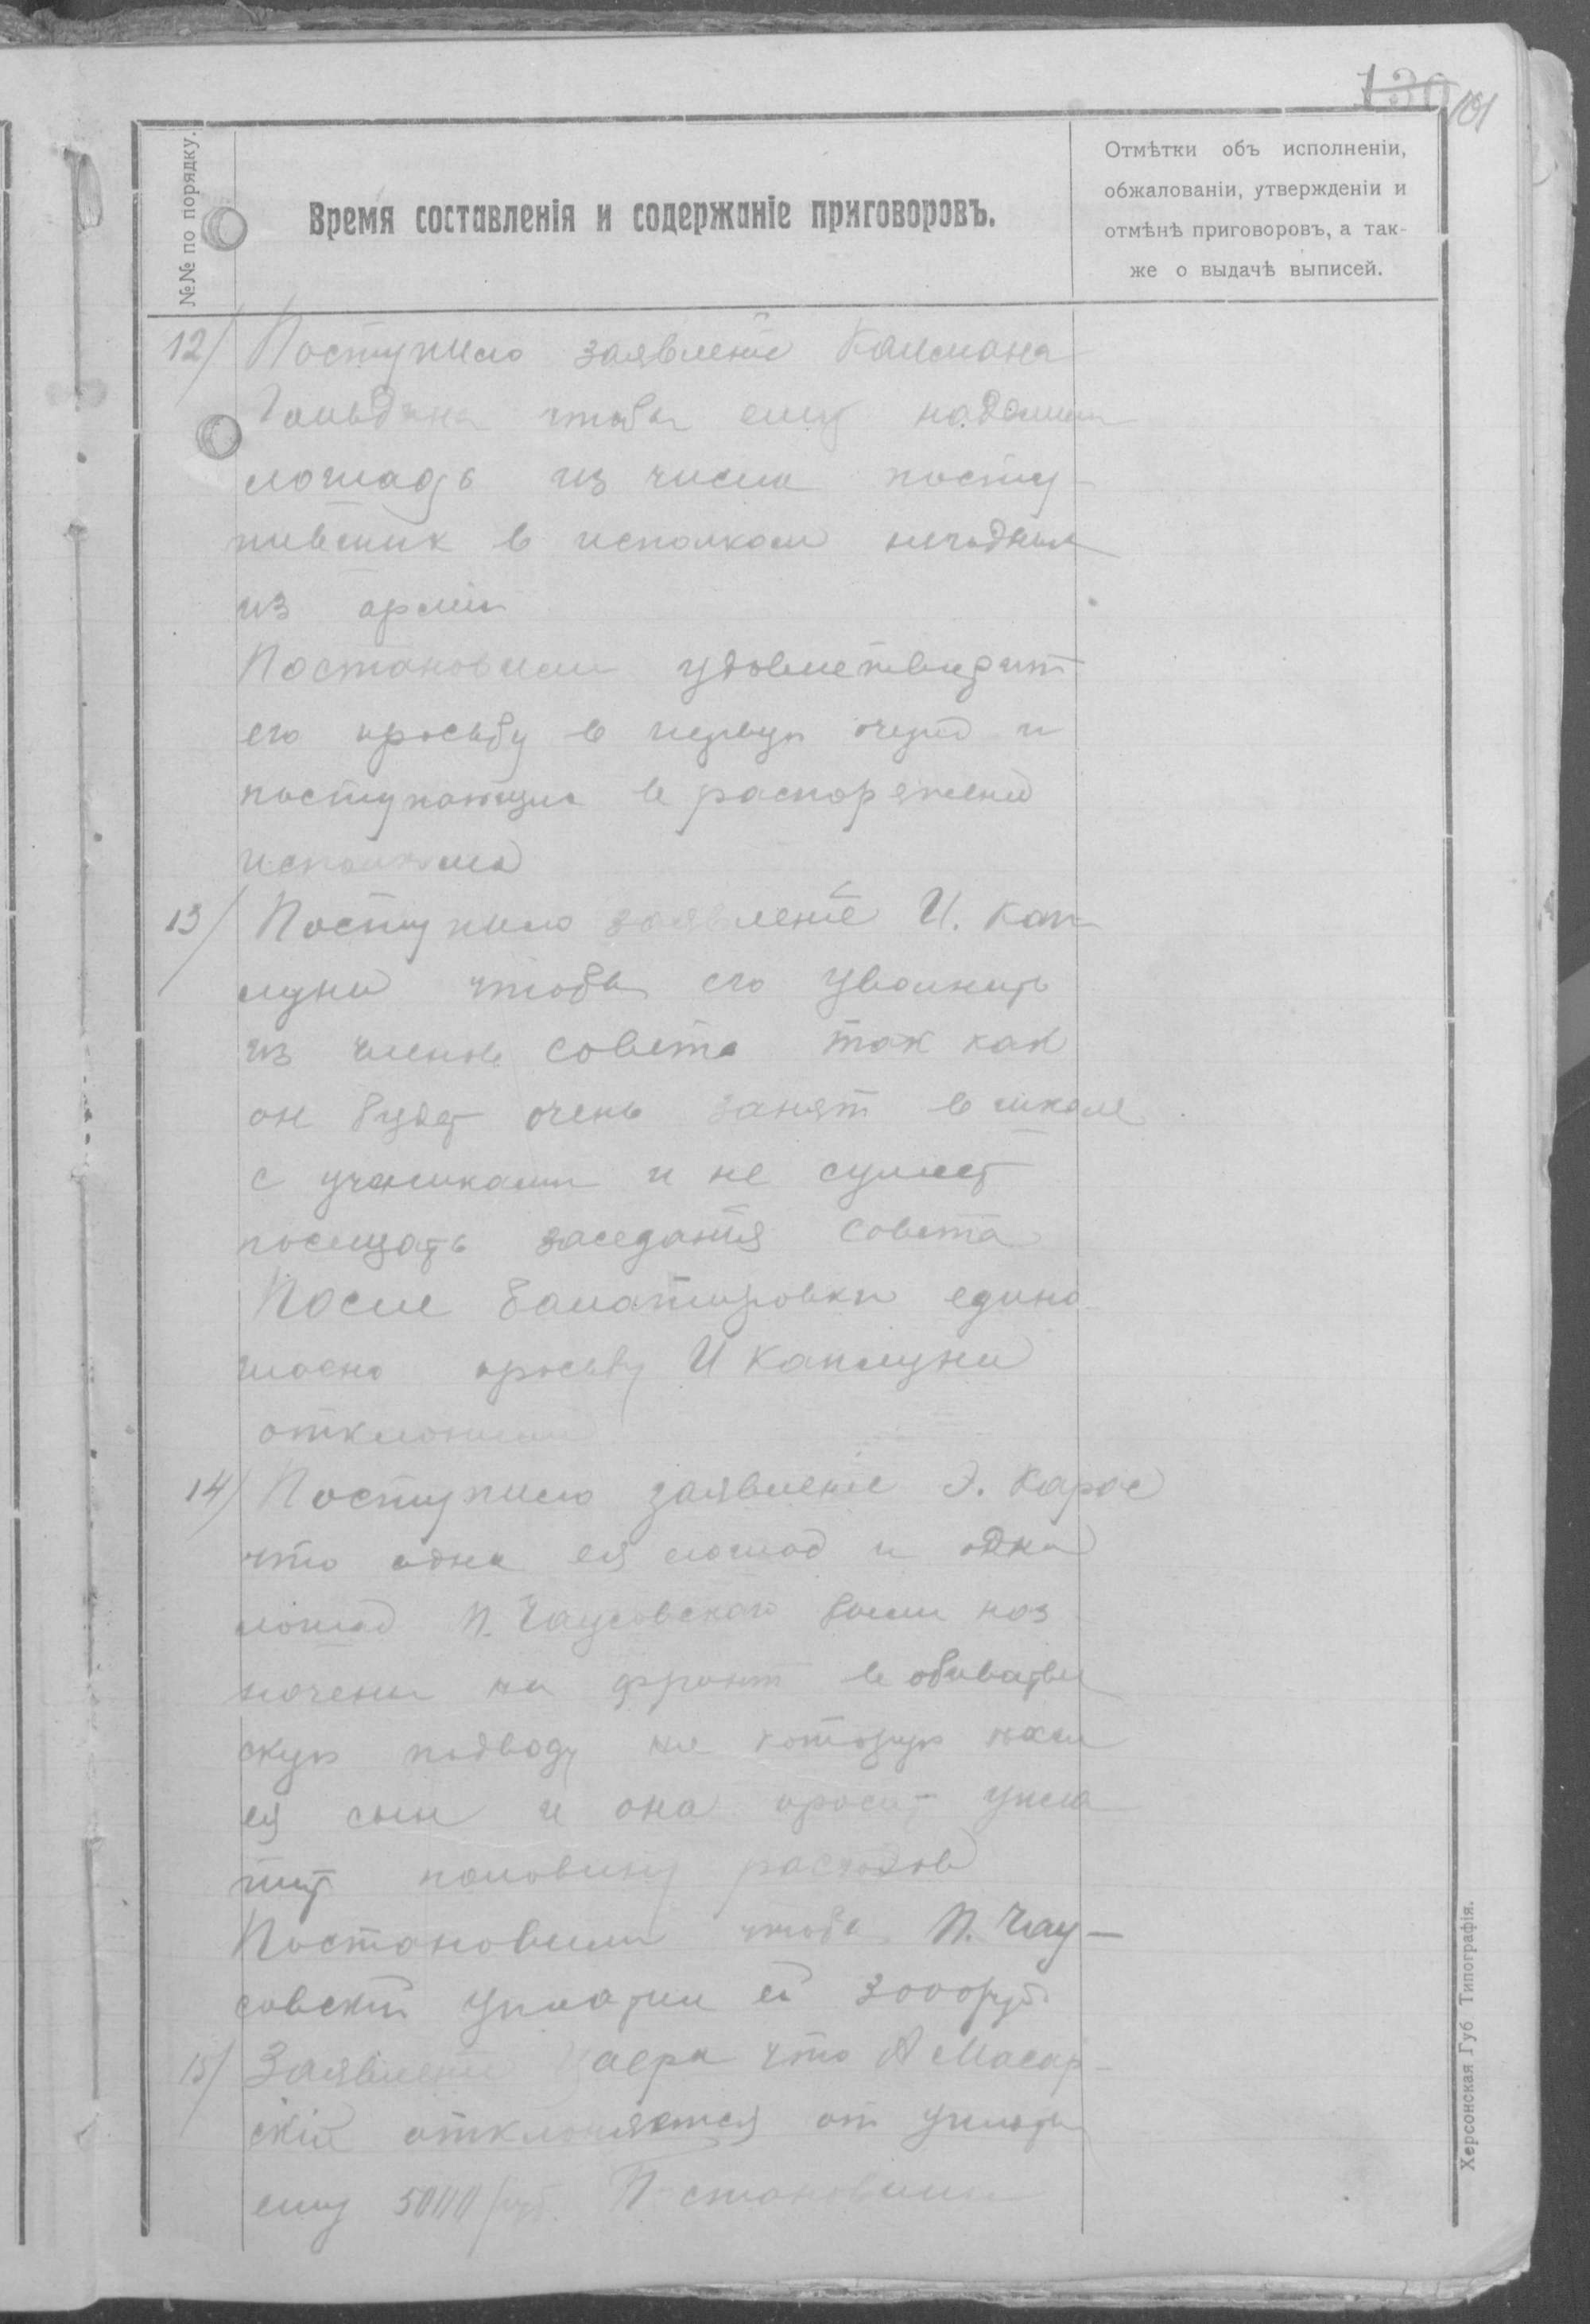 130 101
№№ по порядку.
Время составленія и содержаніе приговоровъ.
Отмѣтки объ исполненіи,
обжалованіи, утвержденіи и
отмѣнѣ приговоровъ, а так-
же о выдачѣ выписей.
12/ Поступило заявленіе Калмана
чтобы ему
лошадь из числа посту-
пивших в исполком негодных
из арміи
Постановили удовлетворит
его просьбу в первую очеред и
поступающих в распоряжени
исполкома
13/ Поступило заявленіе И. Кап-
луна чтобы его уволнить
из членов совета так как
он будет очень занят в школе
с учениками и не сумеет
посещать заседанія совета
После балатировки едино
гласно просьбу И Каплуна
отклонили
14/ Поступило заявленіе Э. Карас
что одна ея лошад и одна
лошад П. Чаусовского были наз
начены на фронт в обывател
скую подводу на которую
ея сын и она просит упла
тит половину расходов
Постановили чтобы П. Чау-
совскій уплатил ей 3000 руб.
15/ Заявленіе что А Масар-
скій отклоняется от уплаты
ему 5000 руб. Постановили
Херсонская Губ Типографія.